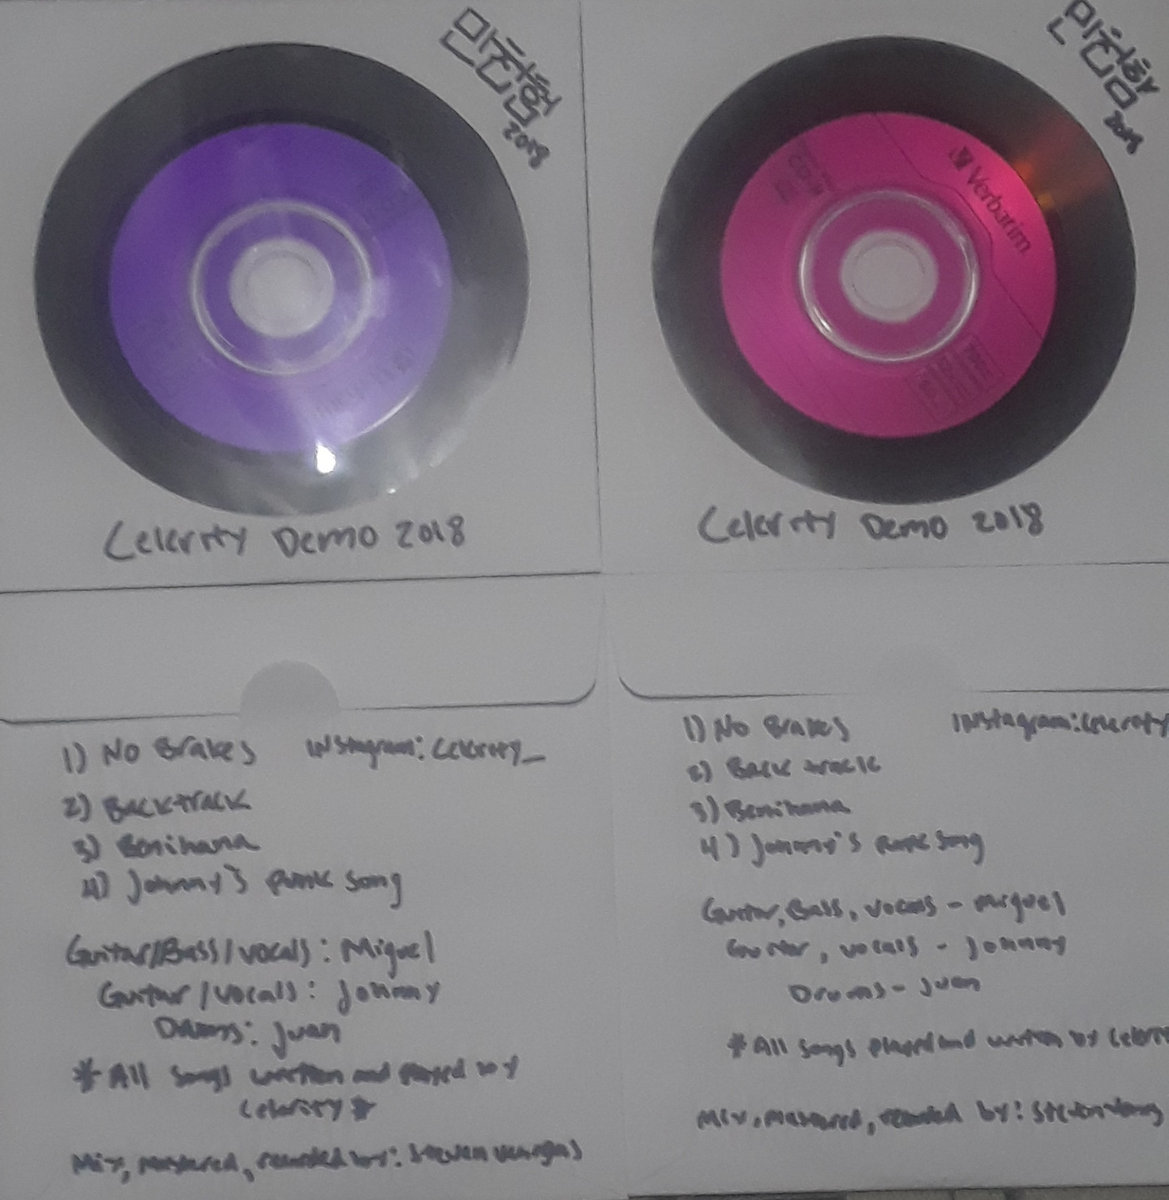 민첩형
2018
Celerity Demo 2018
민첩형
2018
Verbatim
Celerity Demo 2018
1) No Brakes Instagram: Celerity_
2) Backtrack
3) Benihana
4) Johnny's Punk Song
Guitar/Bass/vocals: Miguel
Guitar/vocals: Johnny
Drums: Juan
* All songs written and played by
Celerity *
Mix, mastered, recorded by: Steven Venegas
1) No Brakes Instagram: Celerity
2) Back track
3) Benihana
4) Johnny's Punk Song
Guitar, Bass, vocals - Miguel
Guitar, vocals - Johnny
Drums - Juan
* All songs played and written by Celerit
Mix, mastered, recorded by: Steven